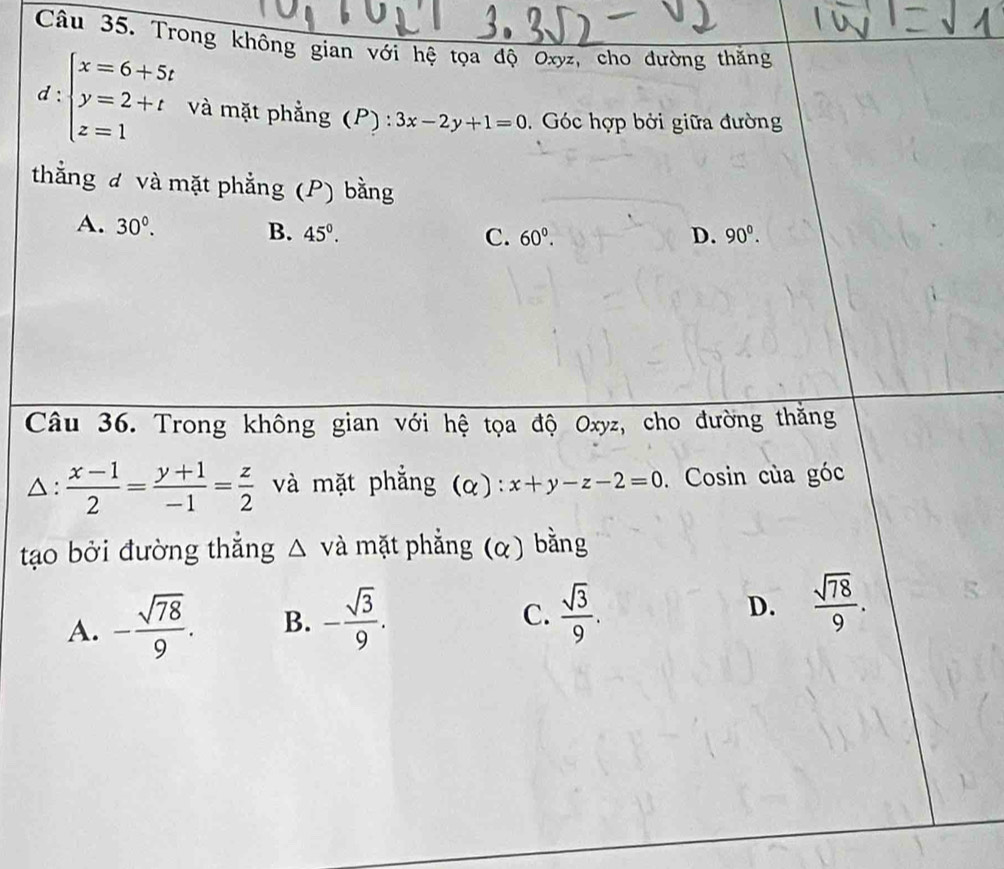 3.3√2 - √2
Câu 35. Trong không gian với hệ tọa độ Oxyz, cho đường thẳng
d : { x = 6 + 5t
y = 2 + t và mặt phẳng (P) : 3x − 2y + 1 = 0. Góc hợp bởi giữa đường
z = 1
thẳng d và mặt phẳng (P) bằng
A. 30⁰. B. 45⁰. C. 60⁰. D. 90⁰.
Câu 36. Trong không gian với hệ tọa độ Oxyz, cho đường thẳng
Δ : (x−1)/2 = (y+1)/−1 = z/2 và mặt phẳng (α) : x + y − z − 2 = 0. Cosin của góc
tạo bởi đường thẳng Δ và mặt phẳng (α) bằng
A. −√78/9. B. −√3/9. C. √3/9. D. √78/9.